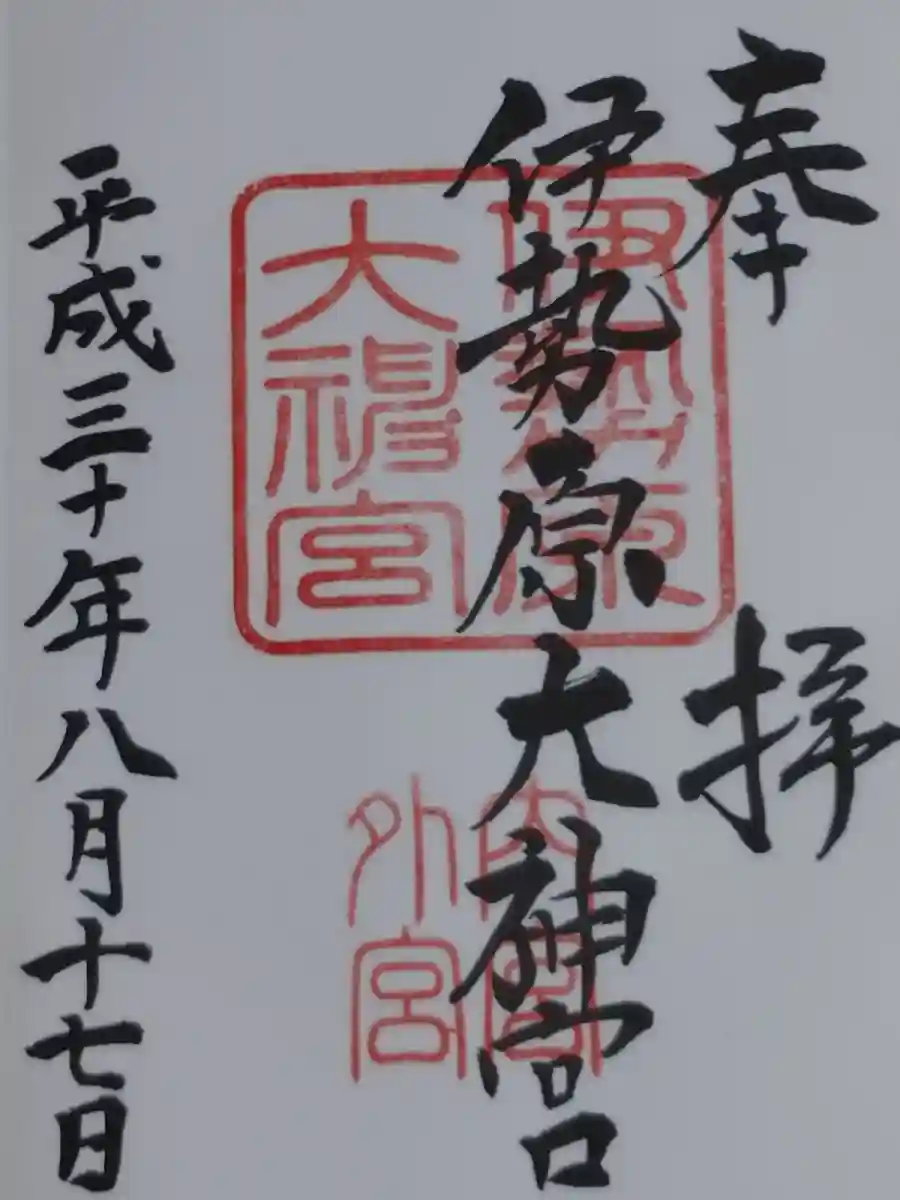 奉拝
伊勢原大神宮
平成三十年八月十七日
伊勢原
大神宮
内宮
外宮